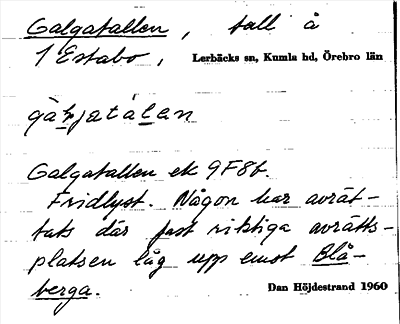 Galgatallen, tall å
1 Estabo, Lerbäcks sn, Kumla hd, Örebro län
Galgatallen ek 9F8f.
Fridlyst. Någon har avrät-
tats där fast riktiga avrätts-
platsen låg upp emot Blå-
berga. Dan Höjdestrand 1960